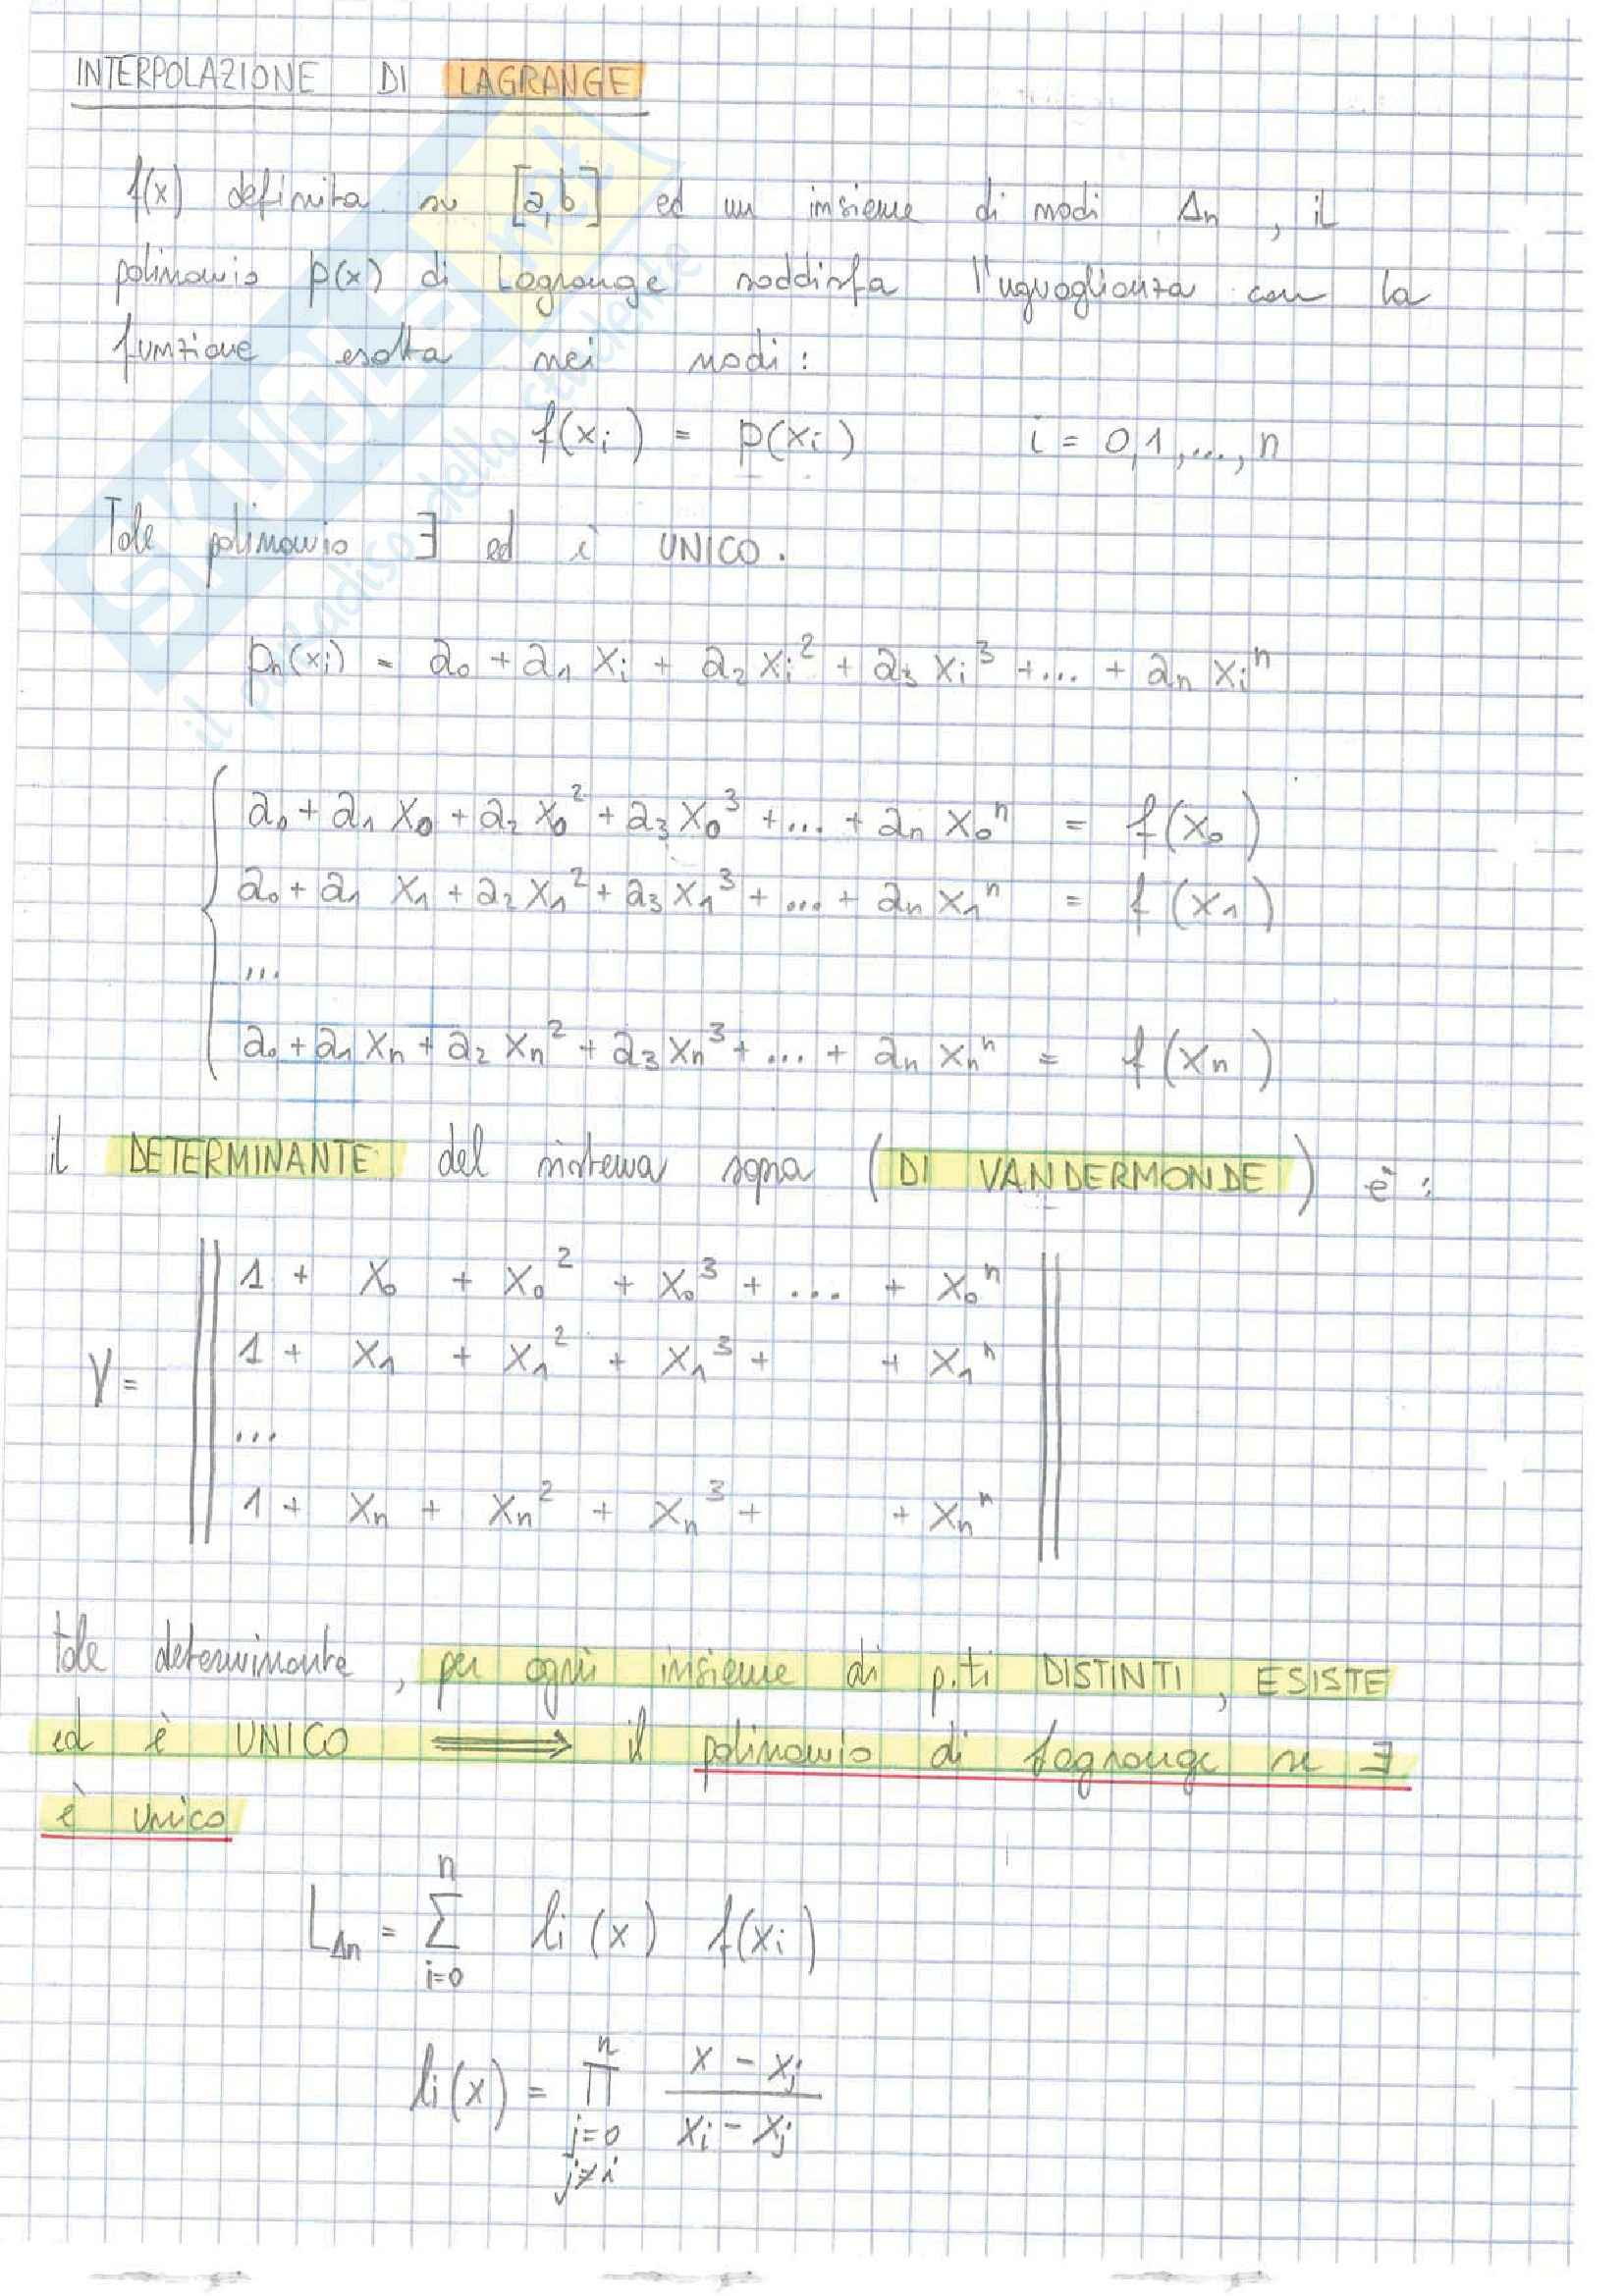 INTERPOLAZIONE DI LAGRANGE
f(x) definita su [a,b] ed un insieme di nodi Δn, il
polinomio p(x) di Lagrange soddisfa l'uguaglianza con la
funzione esatta nei nodi:
f(xi) = p(xi) i = 0,1,...,n
Tale polinomio ∃ ed è UNICO.
pn(xi) = a0 + a1 xi + a2 xi² + a3 xi³ + ... + an xiⁿ
a0 + a1 x0 + a2 x0² + a3 x0³ + ... + an x0ⁿ = f(x0)
a0 + a1 x1 + a2 x1² + a3 x1³ + ... + an x1ⁿ = f(x1)
...
a0 + a1 xn + a2 xn² + a3 xn³ + ... + an xnⁿ = f(xn)
il DETERMINANTE del sistema sopra (DI VANDERMONDE) è:
1 + x0 + x0² + x0³ + ... + x0ⁿ
V = 1 + x1 + x1² + x1³ + + x1ⁿ
...
1 + xn + xn² + xn³ + + xnⁿ
tale determinante, per ogni insieme di p.ti DISTINTI, ESISTE
ed è UNICO ⟹ il polinomio di Lagrange se ∃
è unico
LΔn = Σ i=0 n li(x) f(xi)
li(x) = Π j=0 j≠i n (x - xj)/(xi - xj)
SKUOLA.net
il paradiso dello studente